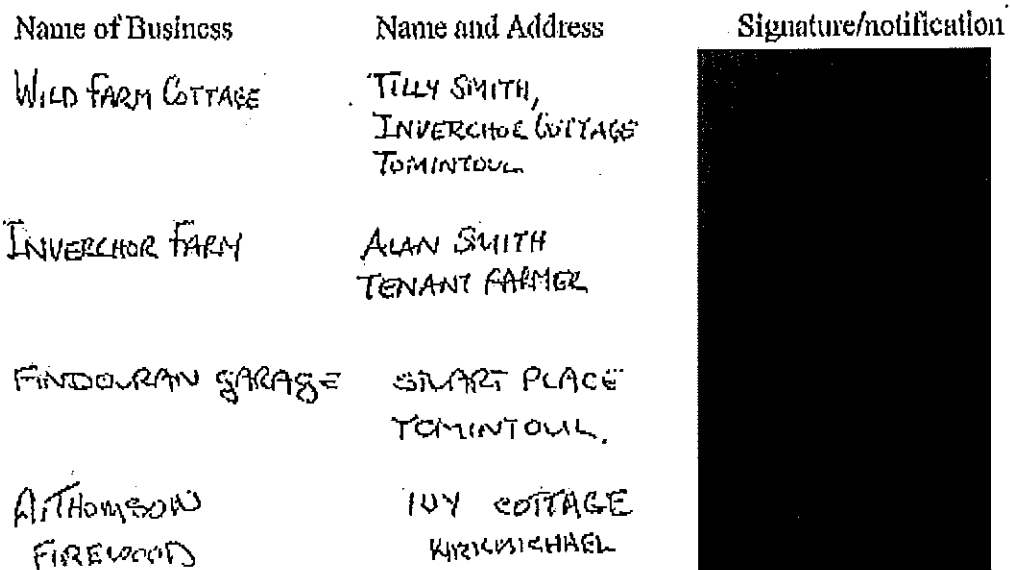 Name of Business Name and Address Signature/notification
WILD FARM COTTAGE TILLY SMITH,
INVERCHOR COTTAGE
TOMINTOUL
INVERCHOR FARM ALAN SMITH
TENANT FARMER
FINDOURAN GARAGE PLACE
TOMINTOUL.
A. THOMSON IVY COTTAGE
FIREWOOD KIRKMICHAEL